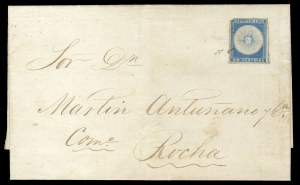 Sor Dn
Martin Antuñano y Ca
Come
Rocha